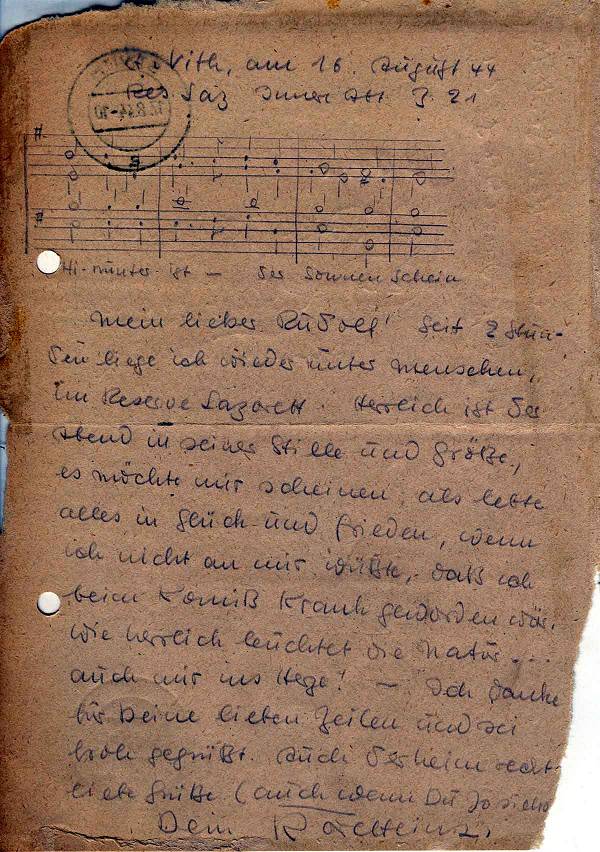 St. Vith, am 16. August 44
Res Laz Innere Abt Z. 21
17.8.44-10
Hi-nunter ist — der Sonnen Schein
Mein lieber Rudolf! Seit 2 Stun-
den liege ich wieder unter Menschen,
im Reserve Lazarett. Herrlich ist der
Abend in seiner Stille und Größe,
es möchte mir scheinen, als lebte
alles in Glück und Frieden, wenn
ich nicht an mir wüßte, daß ich
beim Komiß krank geworden wär.
Wie herrlich leuchtet die Natur...
auch mir ins Auge! — Ich danke
für Deine lieben Zeilen und sei
froh gegrüßt. Auch daheim recht
liebe Grüße. (auch wenn Du
Dein Karlheinz.